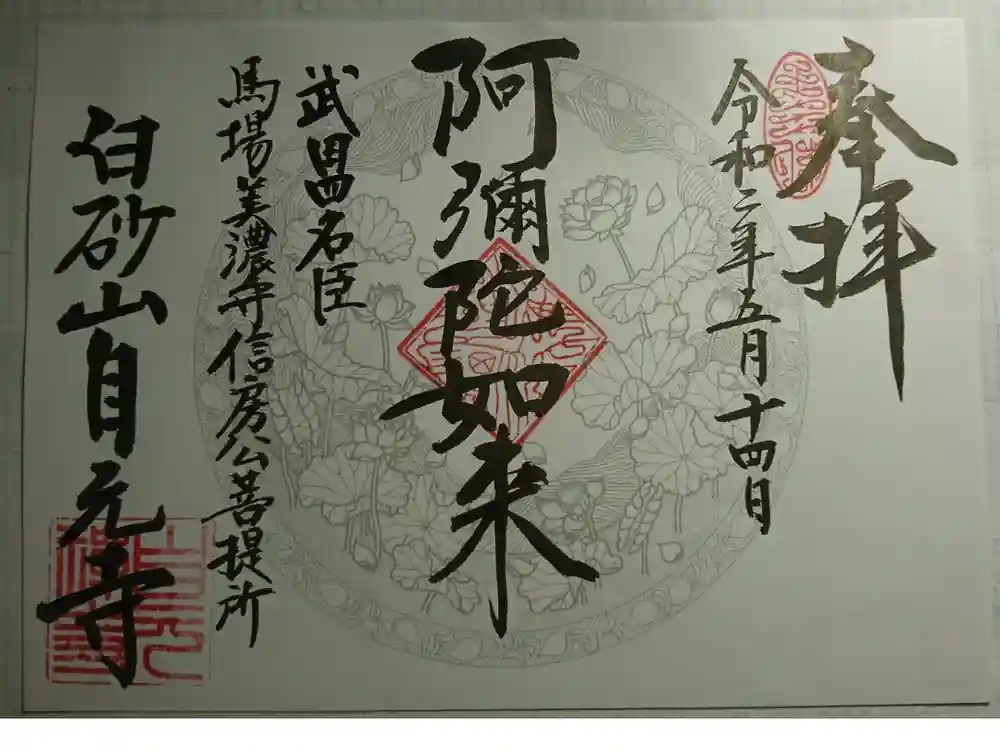 奉拝
令和二年五月十四日
阿彌陀如来
武田四名臣
馬場美濃守信房公菩提所
臼砂山自元寺